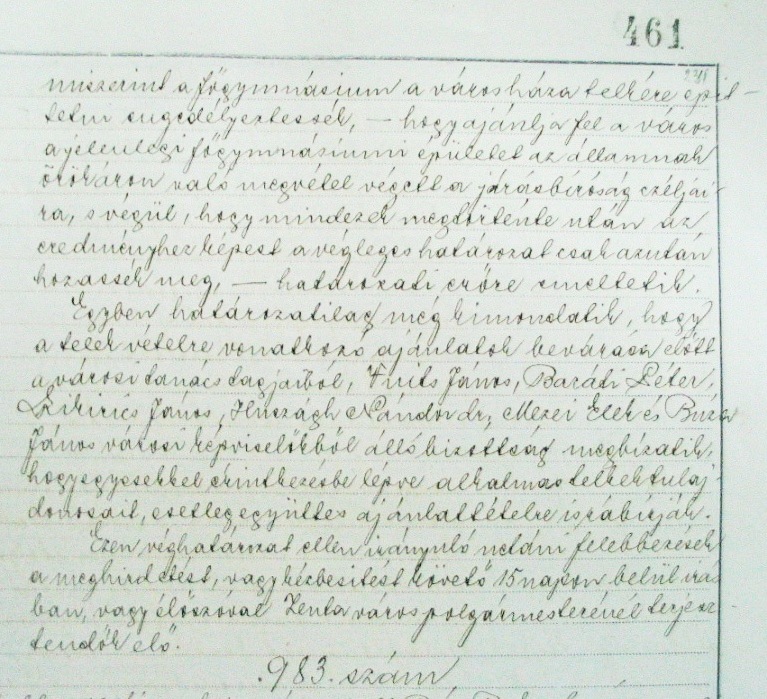 461
231
miszerint a főgymnásium a városháza telkére épit-
tetni engedélyeztessék, — hogy ajánlja fel a város
a jelenlegi főgymnásiumi épületet az államnak
örökáron való megvétel végett a járásbíróság czéljai-
ra, s végül, hogy mindezek megtörténte után az
eredményhez képest a végleges határozat csak azután
hozassék meg, — határozati erőre emeltetik.
Egyben határozatilag még kimondatik, hogy
a telek vételre vonatkozó ajánlatok bevárása előtt
a városi tanács tagjaiból, Vuits János, Baráti Péter,
János, Nándor dr, Mezei Elek és Búza
János városi képviselőkből álló bizottság megbízatik,
hogy egyesekkel érintkezésbe lépve alkalmas telkek tulaj-
donosait, esetleg együttes ajánlattételre is rábírják.
Ezen véghatározat ellen irányuló netáni felebbezések
a meghirdetést, vagy kézbesitést követő 15 napon belül irás
ban, vagy élőszóval Zenta város polgármesterénél terjesz
tendők elő.
983. szám